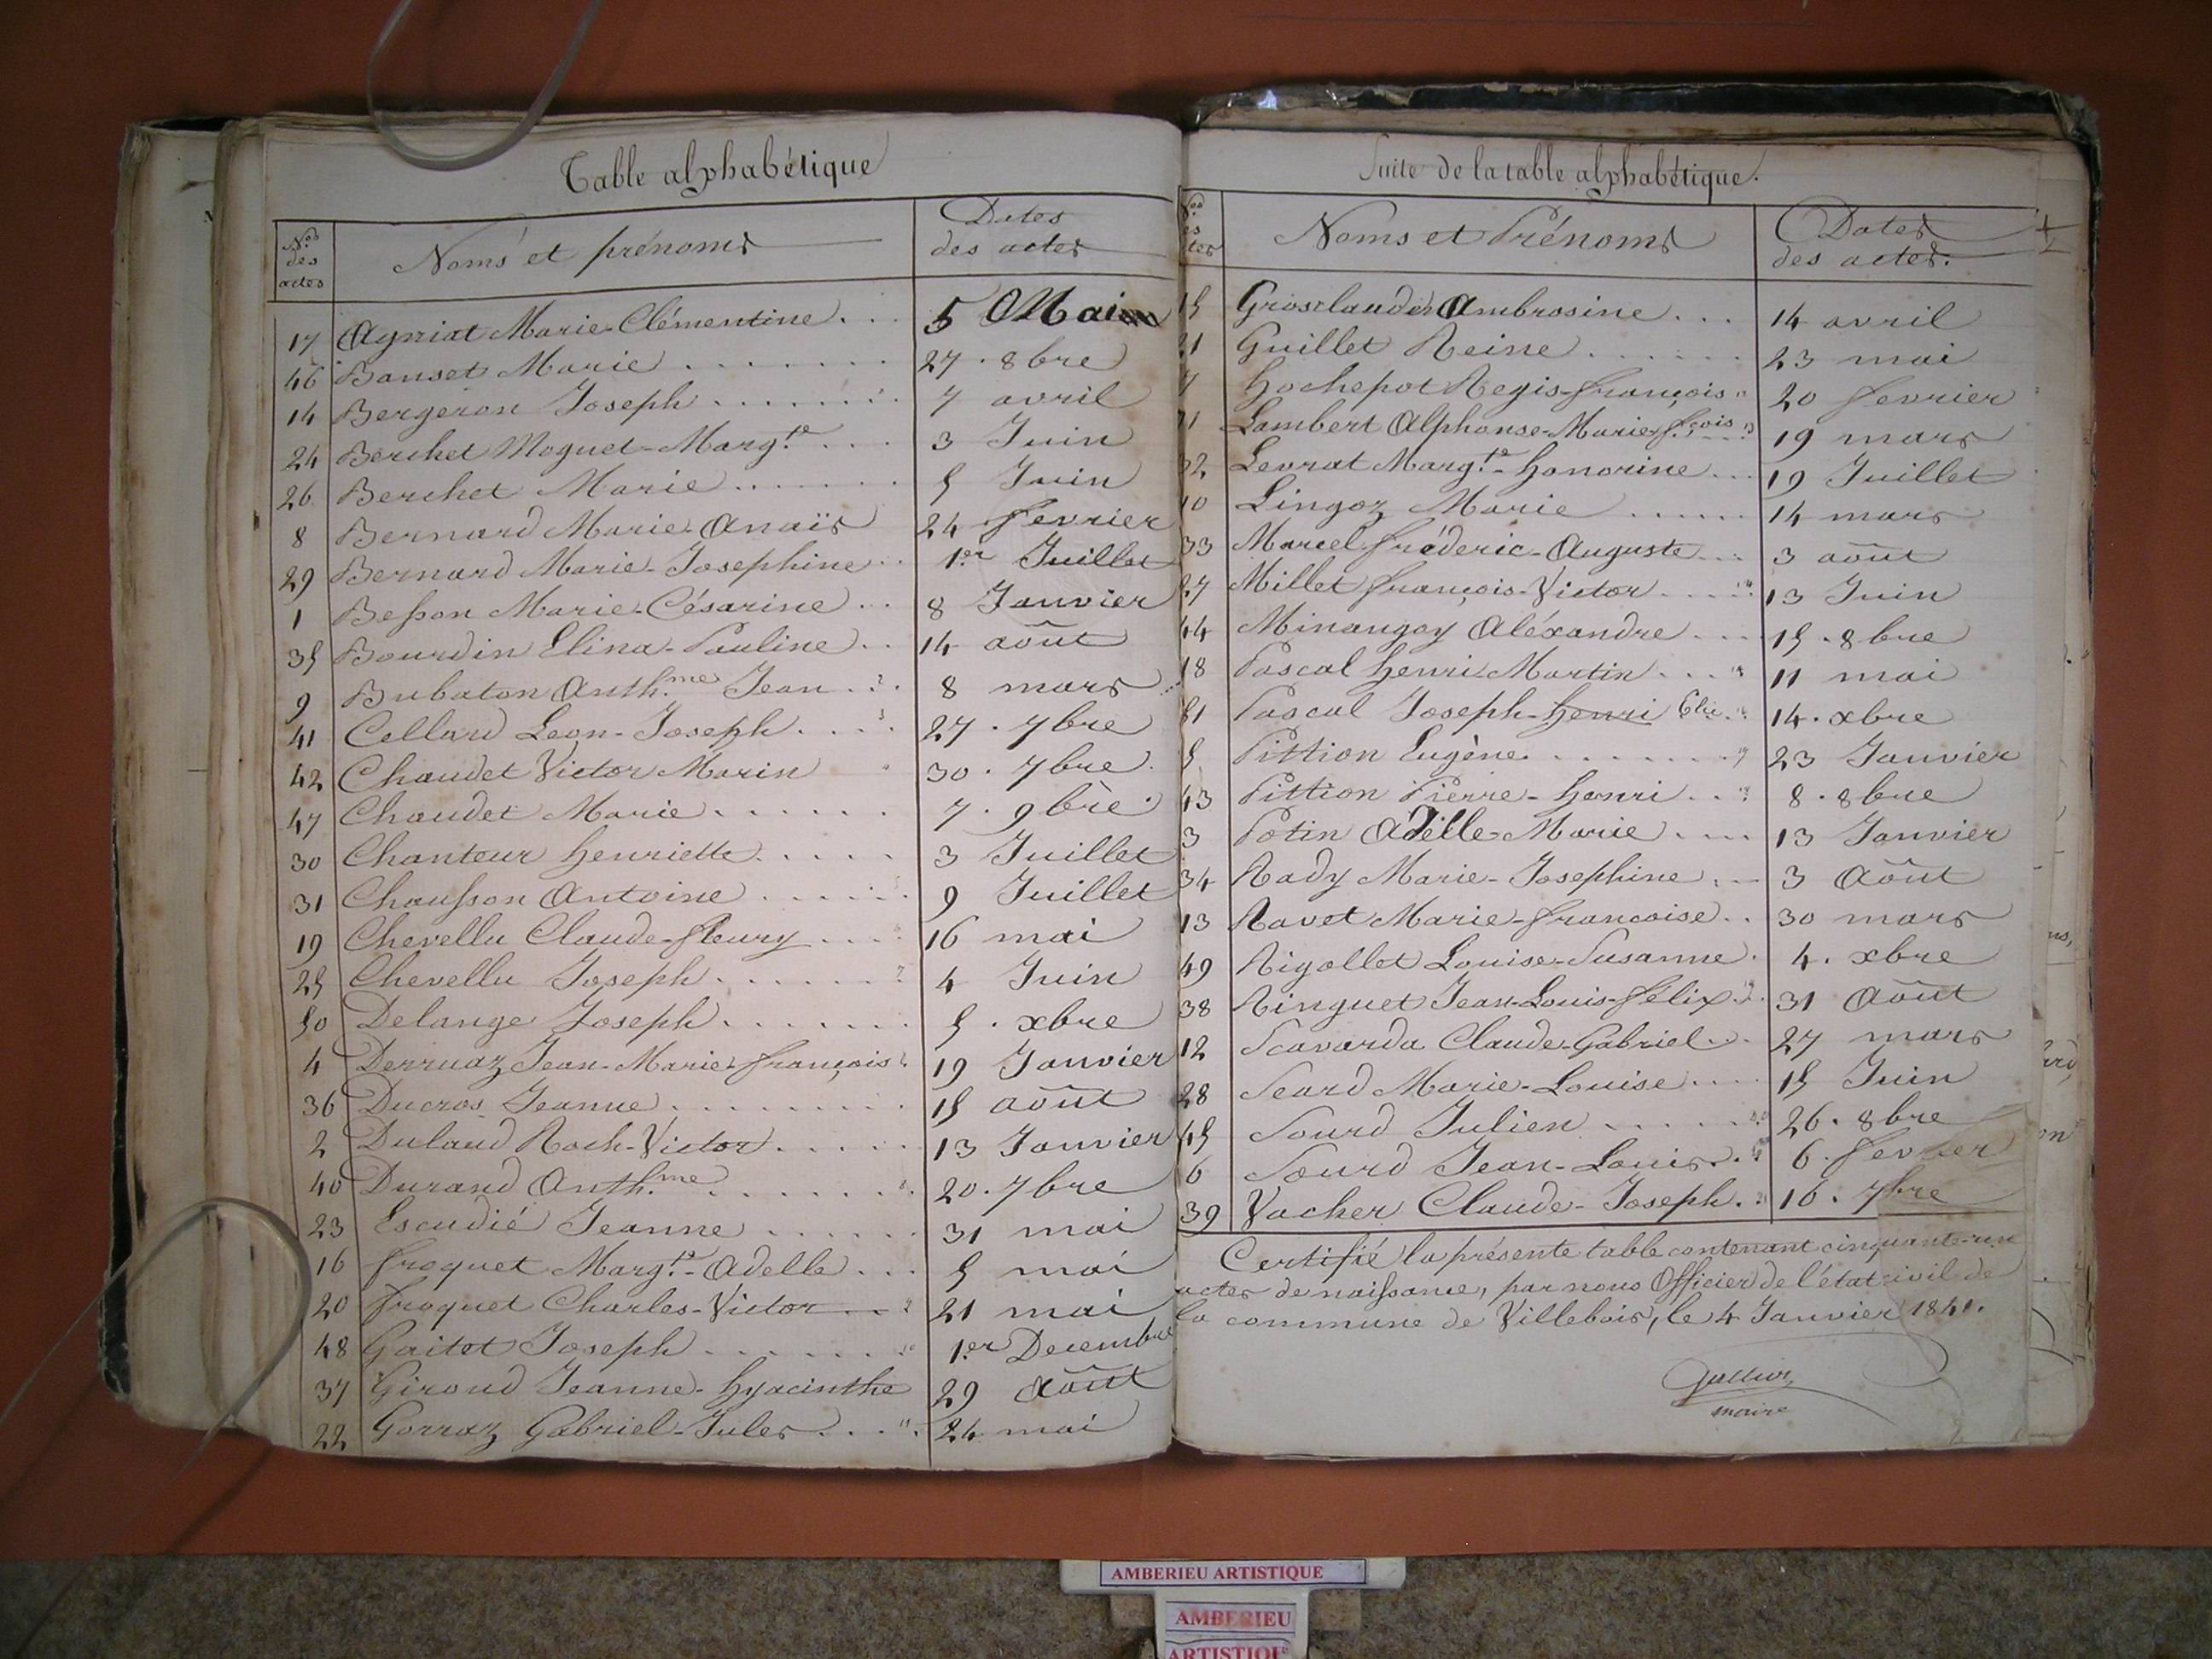 Table alphabétique
Nos des actes Noms et prénoms Dates des actes
17 Agniat Marie-Clémentine 5 Mai
46 Banset Marie 27. 8bre
14 Bergeron Joseph 7 avril
24 Berchet Moguet-Margte 3 Juin
26 Berchet Marie 5 Juin
8 Bernard Marie-Anaïs 24 fevrier
29 Bernard Marie-Josephine 1er Juillet
1 Besson Marie-Césarine 8 Janvier
35 Bourdin Elina-Pauline 14 août
9 Bubaton Anthme Jean 8 mars
41 Cellard Leon-Joseph 27. 7bre
42 Chaudet Victor Marin 30. 7bre
47 Chaudet Marie 7. 9bre
30 Chanteur henriette 3 Juillet
31 Chausson Antoine 9 Juillet
19 Chevellu Claude-fleury 16 mai
25 Chevellu Joseph 4 Juin
50 Delange Joseph 5. xbre
4 Derruaz Jean-Marie-françois 19 Janvier
36 Ducros Jeanne 15 août
2 Dulaud Roch-Victor 13 Janvier
40 Durand Anthme 20. 7bre
23 Escudié Jeanne 31 mai
16 froquet Margte-Adelle 5 mai
20 froquet Charles-Victor 21 mai
48 Gaitot Joseph 1er Decembre
37 Giroud Jeanne-hyacinthe 29 Août
22 Gorraz Gabriel-Jules 24 mai
Suite de la table alphabétique.
Nos des actes Noms et Prénoms Dates des actes.
15 Grosclaude Ambrosine 14 avril
21 Guillet Reine 23 mai
7 hochepot Regis-françois 20 fevrier
11 Lambert Alphonse-Marie-fçois 19 mars
32 Levrat Margte-honorine 19 Juillet
10 Lingoz Marie 14 mars
33 Marcel fréderic-Auguste 3 août
27 Millet françois-Victor 13 Juin
44 Minangoy Aléxandre 15. 8bre
18 Pascal henri Martin 11 mai
51 Pascal Joseph-henri Elie 14. xbre
5 Pittion Eugène 23 Janvier
43 Pittion Pierre-henri 8. 8bre
3 Potin Adèlle-Marie 13 Janvier
34 Rady Marie-Josephine 3 Août
13 Ravet Marie-francoise 30 mars
49 Rigollet Louise-Susanne 4. xbre
38 Ringuet Jean-Louis-félix 31 Août
12 Scavarda Claude-Gabriel 27 mars
28 Seard Marie-Louise 15 Juin
45 Sourd Julien 26. 8bre
6 Sourd Jean-Louis 6. fevrier
39 Vacher Claude-Joseph 16. 7bre
Certifié la présente table contenant cinquante-un
actes de naissance, par nous Officier de l'état civil de
la commune de Villebois, le 4 Janvier 1841.
maire
AMBERIEU ARTISTIQUE
AMBERIEU
ARTISTIQ